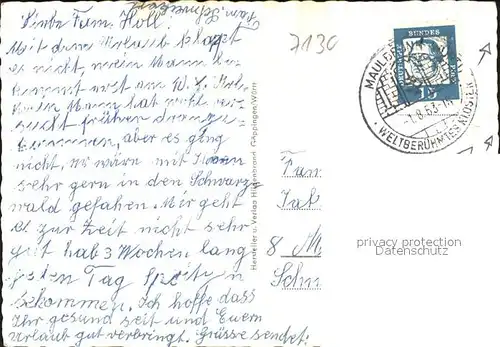 Liebe Fam. Holl!
Mit dem Urlaub klappt
es nicht, mein Mann be-
kommt erst am
mein Mann hat wohl ver-
sucht früher dran zu
kommen, aber es ging
nicht, es wäre mit Ihnen
sehr gern in den Schwarz-
wald gefahren. Mir geht
es zur Zeit nicht sehr
gut hab 3 Wochen lang
jeden Tag Spritzen
bekommen. Ich hoffe dass
Ihr gesund seit und Euern
Urlaub gut verbringt. Grüsse sendet:
Fam.
7130
DEUTSCHE BUNDESPOST
15
MAULBRONN
-1.8.63-
WELTBERÜHMTES KLOSTER
Hersteller u. Verlag Hildenbrand Göppingen/Württ
Fam
Jak
8 M
Schn
privacy protection
Datenschutz